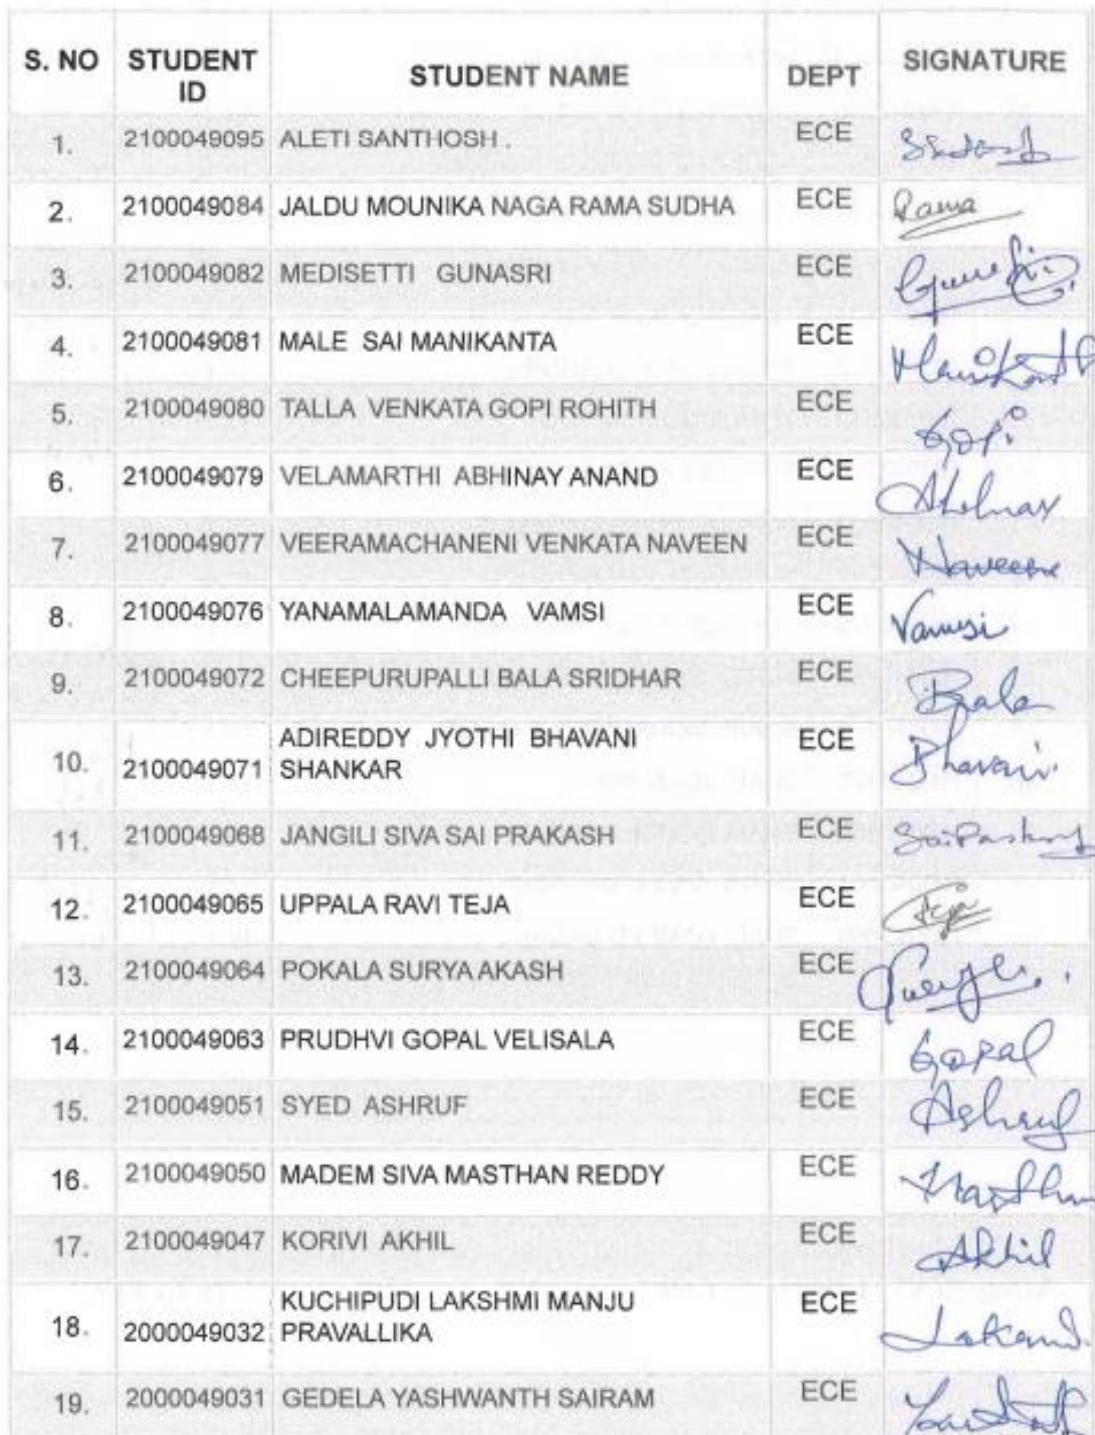 S. NO STUDENT ID STUDENT NAME DEPT SIGNATURE
1. 2100049095 ALETI SANTHOSH . ECE
2. 2100049084 JALDU MOUNIKA NAGA RAMA SUDHA ECE Rama
3. 2100049082 MEDISETTI GUNASRI ECE
4. 2100049081 MALE SAI MANIKANTA ECE
5. 2100049080 TALLA VENKATA GOPI ROHITH ECE Gopi
6. 2100049079 VELAMARTHI ABHINAY ANAND ECE Abhinay
7. 2100049077 VEERAMACHANENI VENKATA NAVEEN ECE Naveen
8. 2100049076 YANAMALAMANDA VAMSI ECE Vamsi
9. 2100049072 CHEEPURUPALLI BALA SRIDHAR ECE Bala
10. 2100049071 ADIREDDY JYOTHI BHAVANI SHANKAR ECE Bhavani
11. 2100049068 JANGILI SIVA SAI PRAKASH ECE
12. 2100049065 UPPALA RAVI TEJA ECE Teja
13. 2100049064 POKALA SURYA AKASH ECE
14. 2100049063 PRUDHVI GOPAL VELISALA ECE Gopal
15. 2100049051 SYED ASHRUF ECE Ashruf
16. 2100049050 MADEM SIVA MASTHAN REDDY ECE
17. 2100049047 KORIVI AKHIL ECE Akhil
18. 2000049032 KUCHIPUDI LAKSHMI MANJU PRAVALLIKA ECE
19. 2000049031 GEDELA YASHWANTH SAIRAM ECE